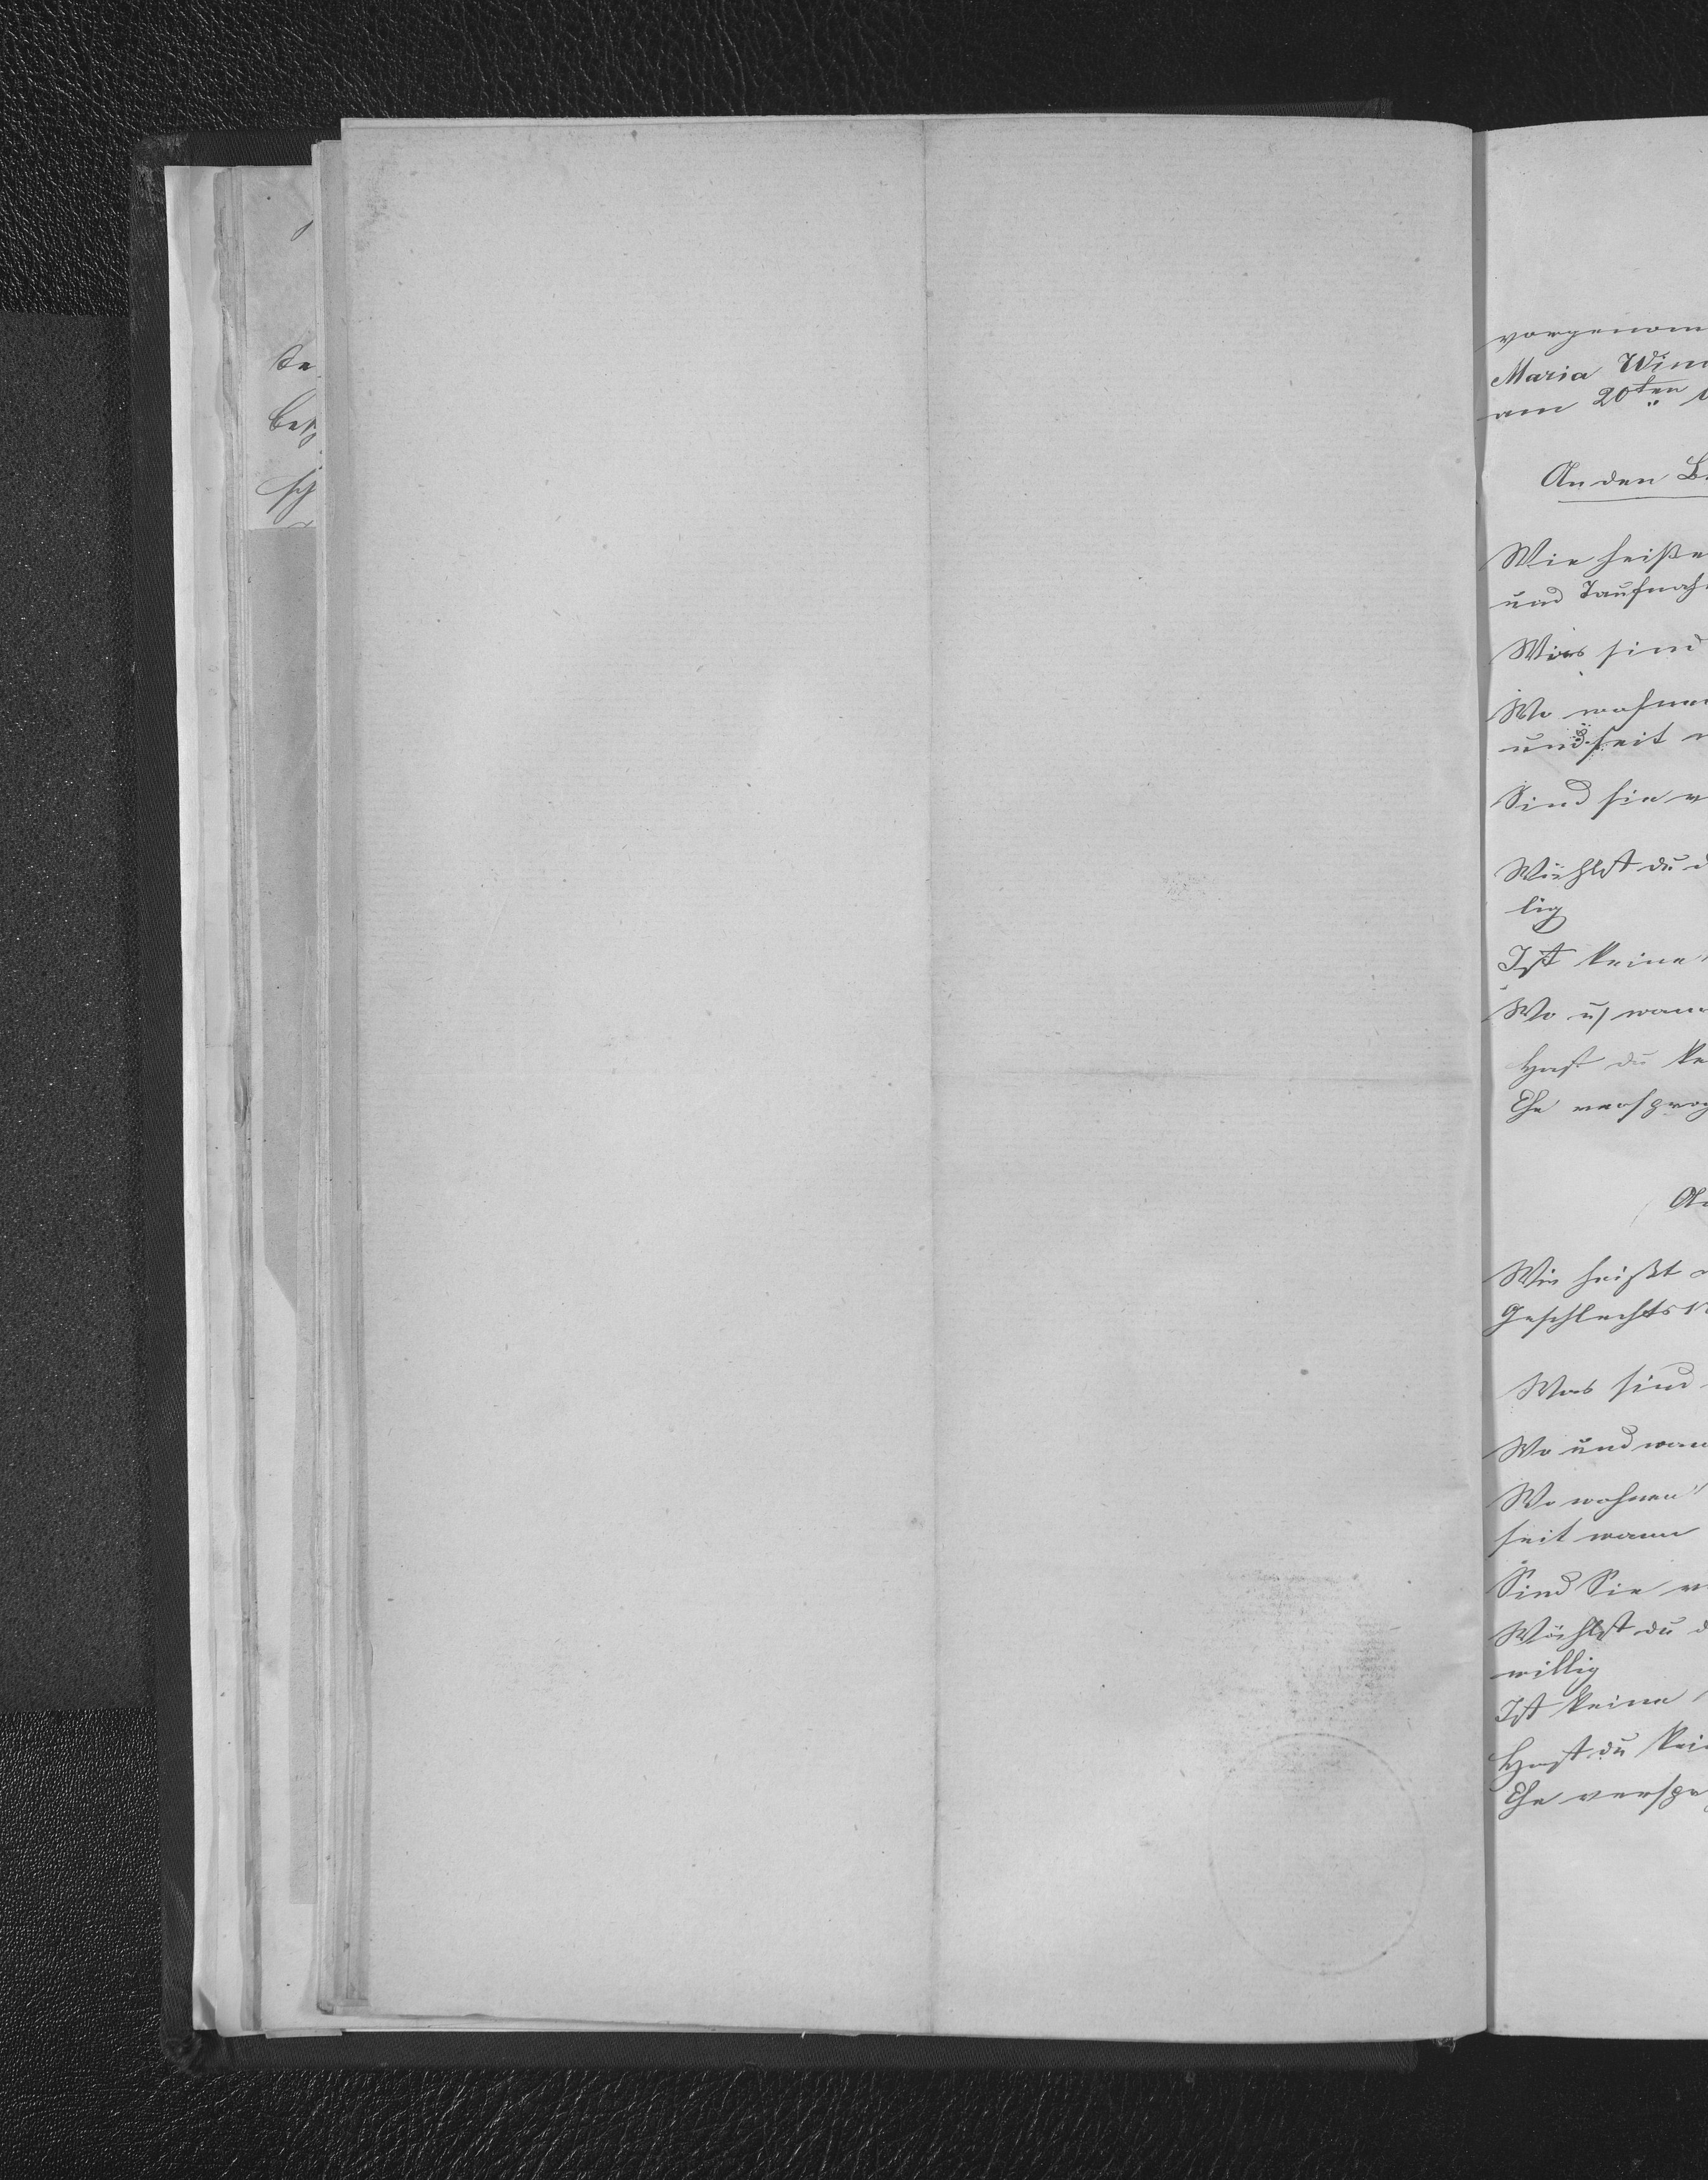 vorgenom
Maria Wim
am 20ten
An den B
Wie heiße
und Taufnah
Was sind
Wo wohnen
und seit
Sind sie v
Wählst du d
lig
Ist keine
Wo u wann
Hast du ke
Ehe versproch
An
Wie heißt
Geschlechts
Was sind
Wo und wan
Wo wohnen
seit wann
Sind Sie v
Wählst du d
willig
Ist keine
Hast du kei
Ehe verspr